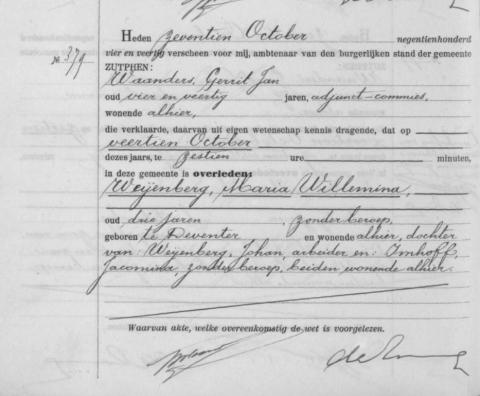 Heden zeventien October negentienhonderd
№ 379 vier en veertig verscheen voor mij, ambtenaar van den burgerlijken stand der gemeente
ZUTPHEN:
Waanders, Gerrit Jan
oud vier en veertig jaren, adjunct-commies,
wonende alhier,
die verklaarde, daarvan uit eigen wetenschap kennis dragende, dat op
veertien October
dezes jaars, te zestien ure minuten,
in deze gemeente is overleden:
Weijenberg, Maria Willemina,
oud drie jaren, zonder beroep,
geboren te Deventer en wonende alhier, dochter
van: Weijenberg, Johan, arbeider en: Imhoff,
Jacomina, zonder beroep, beiden wonende alhier.
Waarvan akte, welke overeenkomstig de wet is voorgelezen.